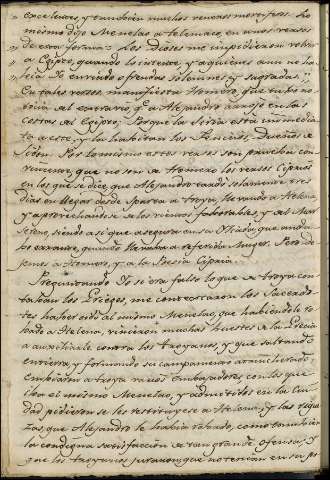 excelentes, y tambien muchos venenos mortiferos. Lo
mismo dijo Menelao a Telemaco, en unos versos
de esta forma: Los Dioses me impidieron volver
a Egipto, quando lo intente, y aquienes aun no ha
bia Yo enviado ofrendas solemnes, y sagradas.
En tales versos manifiesta Homero, que tubo no
ticia del extravio, qe a Alejandro arrojo en las
costas del Egipto: Porque la Siria está inmedia
ta a este, y la habitan los Fenicios, Dueños de
Sidon. Por lo mismo estos versos son prueba con
vincente, que no son de Homero los versos Ciprios
en los que se dice, que Alejandro tardó solamente tres
dias en llegar desde Sparta a Troya, llevando a Helena,
y aprovechandose de los vientos faborables, y del Mar
sereno, siendo asi que asegura en su Yliada, que andu
bo errante, quando llevaba a referida Muger. Pero de
jemos a Homero, y a la Poesia Cipria.
Preguntando Yo si era falso lo que de Troya con
taban los Griegos, me contestaron los Sacerdo
tes haber oido al mismo Menelao, que habiendole ro
bado a Helena, vinieron muchas huestes de la Grecia
a auxiliarle contra los troyanos, y que saltando
en tierra, y formando su campamento atrincherado,
embiaron a troya varios Embajadores, con los que
iba el mismo Menelao, y admitidos en la Ciu
dad pidieron se les restituyese a Helena, y las rique
zas, que Alejandro le habia robado, como tambien
la condigna satisfaccion de tan grande ofensa, y
que los troyanos juraron que no tenian en su po